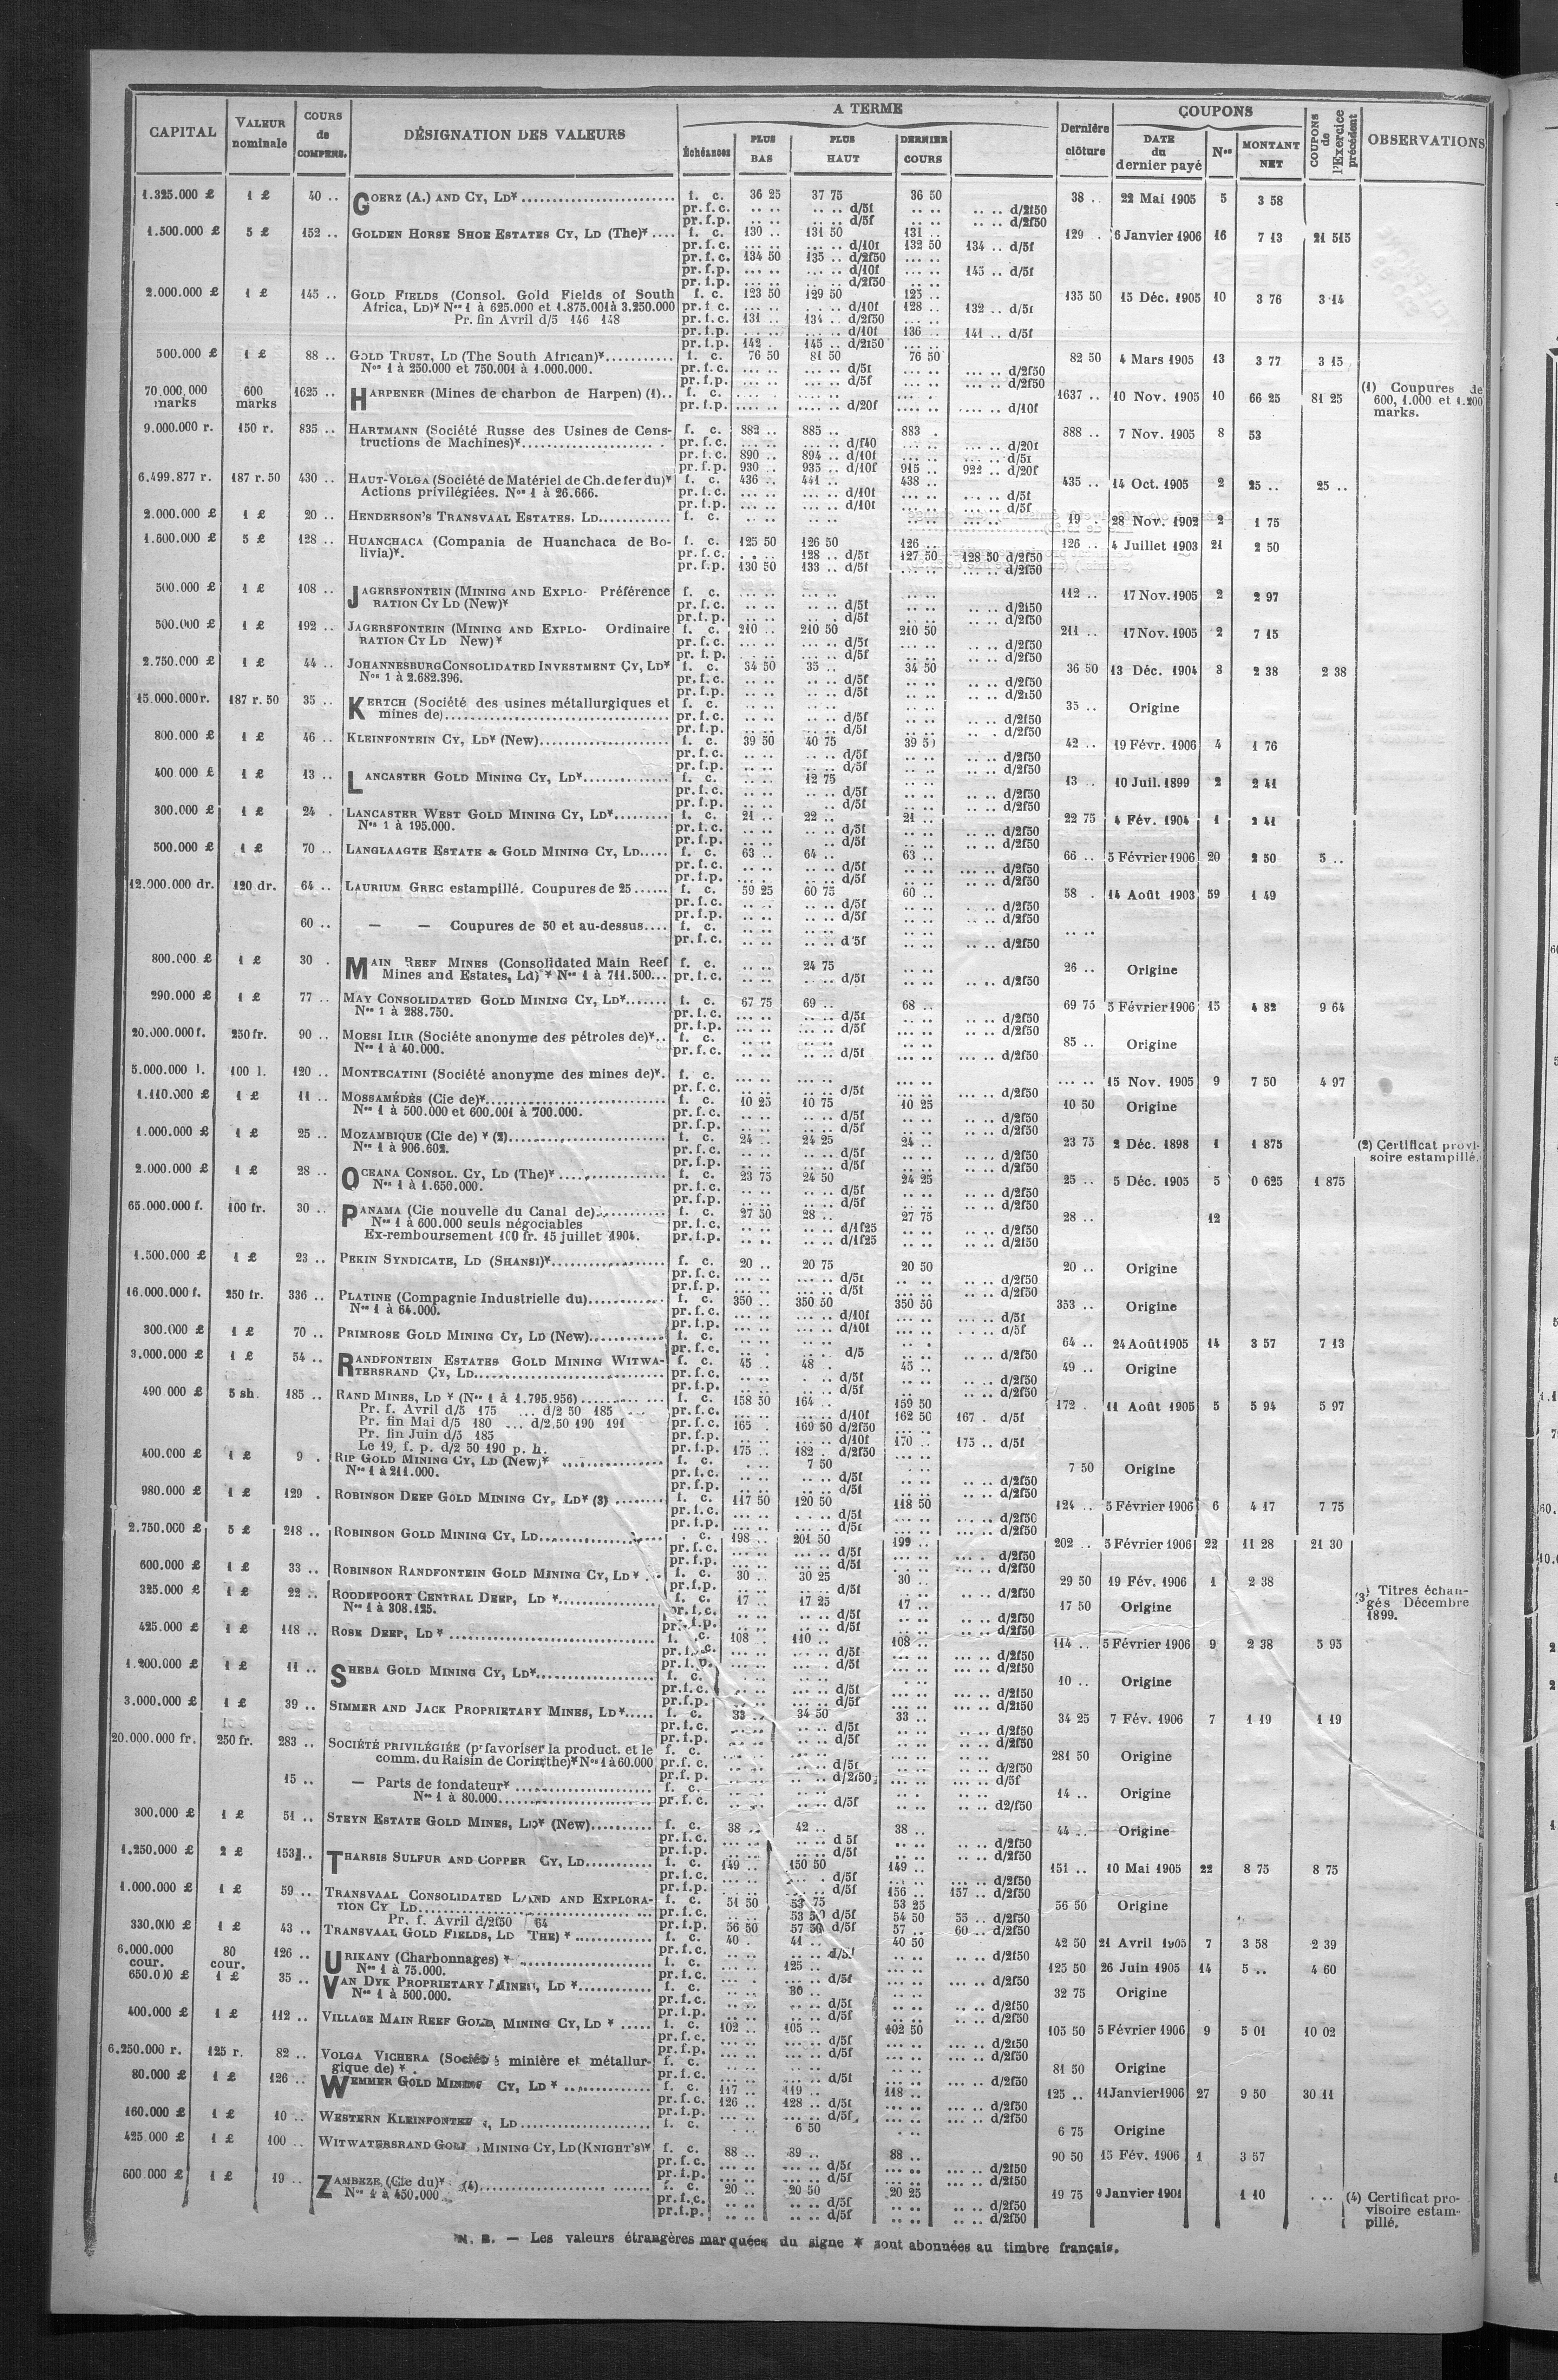 CAPITAL | VALEUR nominale | COURS de COMPENS. | DÉSIGNATION DES VALEURS | A TERME | Dernière clôture | COUPONS | COUPONS de l'Exercice précédent | OBSERVATIONS
Échéances | PLUS BAS | PLUS HAUT | DERNIER COURS | DATE du dernier payé | Nos | MONTANT NET
1.325.000 £ 1 £ 40 .. GOERZ (A.) AND CY, LD* f. c. 36 25 37 75 36 50 38 .. 22 Mai 1905 5 3 58
pr. f. c. .. .. .. .. d/5f .. .. .. .. d/2f50
pr. f. p. .. .. .. .. d/5f .. .. .. .. d/2f50
1.500.000 £ 5 £ 152 .. GOLDEN HORSE SHOE ESTATES CY, LD (The)* f. c. 130 .. 131 50 131 .. 129 . 6 Janvier 1906 16 7 13 21 515
pr. f. c. ... .. ... .. d/10f 132 50 134 .. d/5f
pr. f. c. 134 50 135 .. d/2f50 ... ..
pr. f. p. ... .. ... .. d/10f 145 .. d/5f
pr. f. p. ... .. ... .. d/2f50
2.000.000 £ 1 £ 145 .. GOLD FIELDS (Consol. Gold Fields of South f. c. 123 50 129 50 125 .. 135 50 15 Déc. 1905 10 3 76 3 14
Africa, LD)* Nos 1 à 625.000 et 1.875.001 à 3.250.000 pr. f. c. d/10f 128 .. 132 .. d/5f
Pr. fin Avril d/5 146 148 pr. f. c. 131 .. 134 .. d/2f50
pr. f. p. d/10f 136 .. 141 .. d/5f
pr. f. p. 142 . 145 .. d/2f50
500.000 £ 1 £ 88 .. GOLD TRUST, LD (The South African)* f. c. 76 50 81 50 76 50 82 50 4 Mars 1905 13 3 77 3 15
Nos 1 à 250.000 et 750.001 à 1.000.000. pr. f. c. d/5f d/2f50
pr. f. p. d/5f d/2f50
70.000.000 marks 600 marks 1625 .. HARPENER (Mines de charbon de Harpen) (1).. f. c. 1637 .. 10 Nov. 1905 10 66 25 81 25 (1) Coupures de 600, 1.000 et 1.200 marks.
pr. f. p. d/20f d/10f
9.000.000 r. 150 r. 835 .. HARTMANN (Société Russe des Usines de Cons- f. c. 882 .. 885 .. 883 . 888 .. 7 Nov. 1905 8 53
tructions de Machines)* pr. f. c. d/f40 d/20f
pr. f. c. 890 .. 894 .. d/10f d/5f
pr. f. p. 930 .. 935 .. d/10f 915 .. 922 .. d/20f
6.499.877 r. 187 r. 50 430 .. HAUT-VOLGA (Société de Matériel de Ch. de fer du)* f. c. 436 .. 441 .. 438 .. 435 .. 14 Oct. 1905 2 25 .. 25 ..
Actions privilégiées. Nos 1 à 26.666. pr. f. c. d/10f d/5f
pr. f. p. d/10f d/5f
2.000.000 £ 1 £ 20 .. HENDERSON'S TRANSVAAL ESTATES, LD f. c. 19 . 28 Nov. 1902 2 1 75
1.600.000 £ 5 £ 128 .. HUANCHACA (Compania de Huanchaca de Bo- f. c. 125 50 126 50 126 .. 126 .. 4 Juillet 1903 21 2 50
livia)*. pr. f. c. 128 .. d/5f 127 50 128 50 d/2f50
pr. f. p. 130 50 133 .. d/5f d/2f50
500.000 £ 1 £ 108 .. JAGERSFONTEIN (MINING AND EXPLO- Préférence f. c. 112 .. 17 Nov. 1905 2 2 97
RATION CY LD (New)* pr. f. c. d/5f d/2f50
pr. f. p. d/5f d/2f50
500.000 £ 1 £ 192 .. JAGERSFONTEIN (MINING AND EXPLO- Ordinaire f. c. 210 .. 210 50 210 50 211 .. 17 Nov. 1905 2 7 15
RATION CY LD New)* pr. f. c. d/5f d/2f50
pr. f. p. d/5f d/2f50
2.750.000 £ 1 £ 44 .. JOHANNESBURG CONSOLIDATED INVESTMENT CY, LD* f. c. 34 50 35 .. 34 50 36 50 13 Déc. 1904 3 2 38 2 38
Nos 1 à 2.682.396. pr. f. c. d/5f d/2f50
pr. f. p. d/5f d/2f50
15.000.000 r. 187 r. 50 35 .. KERTCH (Société des usines métallurgiques et f. c. 35 .. Origine
mines de) pr. f. c. d/5f d/2f50
pr. f. p. d/5f d/2f50
800.000 £ 1 £ 46 .. KLEINFONTEIN CY, LD* (New) f. c. 39 50 40 75 39 50 42 .. 19 Févr. 1906 4 1 76
pr. f. c. d/5f d/2f50
pr. f. p. d/5f d/2f50
400 000 £ 1 £ 13 .. LANCASTER GOLD MINING CY, LD* f. c. 12 75 13 .. 10 Juil. 1899 2 2 41
pr. f. c. d/5f d/2f50
pr. f. p. d/5f d/2f50
300.000 £ 1 £ 24 . LANCASTER WEST GOLD MINING CY, LD* f. c. 21 .. 22 .. 21 .. 22 75 4 Fév. 1904 1 2 41
Nos 1 à 195.000. pr. f. c. d/5f d/2f50
pr. f. p. d/5f d/2f50
500.000 £ 1 £ 70 .. LANGLAAGTE ESTATE & GOLD MINING CY, LD f. c. 63 .. 64 .. 63 .. 66 .. 5 Février 1906 20 2 50 5 ..
pr. f. c. d/5f d/2f50
pr. f. p. d/5f d/2f50
12.000.000 dr. 120 dr. 64 .. LAURIUM GREC estampillé. Coupures de 25 f. c. 59 25 60 75 60 .. 58 . 14 Août 1903 59 1 49
pr. f. c. d/5f d/2f50
pr. f. p. d/5f d/2f50
60 .. — — Coupures de 50 et au-dessus f. c. .. ..
pr. f. c. d 5f d/2f50
800.000 £ 1 £ 30 . MAIN REEF MINES (Consolidated Main Reef f. c. 24 75 26 .. Origine
Mines and Estates, Ld)* Nos 1 à 711.500... pr. f. c. d/5f d/2f50
290.000 £ 1 £ 77 .. MAY CONSOLIDATED GOLD MINING CY, LD* f. c. 67 75 69 .. 68 .. 69 75 5 Février 1906 15 4 82 9 64
Nos 1 à 288.750. pr. f. c. d/5f d/2f50
pr. f. p. d/5f d/2f50
20.000.000 f. 250 fr. 90 .. MOESI ILIR (Société anonyme des pétroles de)*.. f. c. 85 .. Origine
Nos 1 à 40.000. pr. f. c. d/5f d/2f50
5.000.000 l. 100 l. 120 .. MONTECATINI (Société anonyme des mines de)*. f. c. ... .. 15 Nov. 1905 9 7 50 4 97
pr. f. c. d/5f d/2f50
1.110.000 £ 1 £ 11 .. MOSSAMÉDÈS (Cie de)* f. c. 10 25 10 75 10 25 10 50 Origine
Nos 1 à 500.000 et 600.001 à 700.000. pr. f. c. d/5f d/2f50
pr. f. p. d/5f d/2f50
1.000.000 £ 1 £ 25 .. MOZAMBIQUE (Cie de) * (2) f. c. 24 .. 24 25 24 .. 23 75 2 Déc. 1898 1 1 875 (2) Certificat provisoire estampillé.
Nos 1 à 906.602. pr. f. c. d/5f d/2f50
pr. f. p. d/5f d/2f50
2.000.000 £ 1 £ 28 .. OCEANA CONSOL. CY, LD (The)* f. c. 23 75 24 50 24 25 25 .. 5 Déc. 1905 5 0 625 1 875
Nos 1 à 1.650.000. pr. f. c. d/5f d/2f50
pr. f. p. d/5f d/2f50
65.000.000 f. 100 fr. 30 .. PANAMA (Cie nouvelle du Canal de) f. c. 27 50 28 .. 27 75 28 .. 12
Nos 1 à 600.000 seuls négociables pr. f. c. d/1f25 d/2f50
Ex-remboursement 100 fr. 15 juillet 1904. pr. f. p. d/1f25 d/2f50
1.500.000 £ 1 £ 23 .. PEKIN SYNDICATE, LD (SHANSI)* f. c. 20 .. 20 75 20 50 20 .. Origine
pr. f. c. d/5f d/2f50
pr. f. p. d/5f d/2f50
16.000.000 f. 250 fr. 336 .. PLATINE (Compagnie Industrielle du) f. c. 350 .. 350 50 350 50 353 .. Origine
Nos 1 à 64.000. pr. f. c. d/10f d/5f
pr. f. p. d/10f d/5f
300.000 £ 1 £ 70 .. PRIMROSE GOLD MINING CY, LD (New) f. c. 64 .. 24 Août 1905 14 3 57 7 13
pr. f. c. d/5 d/2f50
3.000.000 £ 1 £ 54 .. RANDFONTEIN ESTATES GOLD MINING WITWA- f. c. 45 .. 48 . 45 .. 49 .. Origine
TERSRAND CY, LD pr. f. c. d/5f d/2f50
pr. f. p. d/5f d/2f50
490.000 £ 5 sh. 185 .. RAND MINES, LD * (Nos 1 à 1.795.956) f. c. 158 50 164 .. 159 50 172 . 11 Août 1905 5 5 94 5 97
Pr. f. Avril d/5 175 ... d/2 50 185 pr. f. c. d/10f 162 50 167 . d/5f
Pr. fin Mai d/5 180 ... d/2.50 190 191 pr. f. c. 165 . 169 50 d/2f50
Pr. fin Juin d/5 185 pr. f. p. d/10f 170 .. 175 .. d/5f
Le 19, f. p. d/2 50 190 p. h. pr. f. p. 175 .. 182 . d/2f50
400.000 £ 1 £ 9 . RIP GOLD MINING CY, LD (New)* f. c. 7 50 7 50 Origine
Nos 1 à 211.000. pr. f. c. d/5f d/2f50
pr. f. p. d/5f d/2f50
980.000 £ 1 £ 129 . ROBINSON DEEP GOLD MINING CY, LD* (3) f. c. 117 50 120 50 118 50 124 .. 5 Février 1906 6 4 17 7 75
pr. f. c. d/5f d/2f50
pr. f. p. d/5f d/2f50
2.750.000 £ 5 £ 218 .. ROBINSON GOLD MINING CY, LD . c. 198 .. 201 50 199 .. 202 .. 5 Février 1906 22 11 28 21 30
pr. f. c. d/5f d/2f50
pr. f. p. d/5f d/2f50
600.000 £ 1 £ 33 .. ROBINSON RANDFONTEIN GOLD MINING CY, LD* f. c. 30 .. 30 25 30 .. 29 50 19 Fév. 1906 1 2 38
pr. f. p. d/5f d/2f50
325.000 £ 1 £ 22 .. ROODEPOORT CENTRAL DEEP, LD * f. c. 17 .. 17 25 17 .. 17 50 Origine (3) Titres échangés Décembre 1899.
Nos 1 à 308.125. pr. f. c. d/5f d/2f50
pr. f. p. d/5f d/2f50
425.000 £ 1 £ 118 .. ROSE DEEP, LD * f. c. 108 . 110 .. 108 .. 114 .. 5 Février 1906 9 2 38 5 95
pr. f. c. d/5f d/2f50
pr. f. p. d/5f d/2f50
1.200.000 £ 1 £ 11 .. SHEBA GOLD MINING CY, LD* f. c. 10 .. Origine
pr. f. c. d/5f d/2f50
pr. f. p. d/5f d/2f50
3.000.000 £ 1 £ 39 .. SIMMER AND JACK PROPRIETARY MINES, LD* f. c. 33 .. 34 50 33 .. 34 25 7 Fév. 1906 7 1 19 1 19
pr. f. c. d/5f d/2f50
pr. f. p. d/5f d/2f50
20.000.000 fr. 250 fr. 283 .. SOCIÉTÉ PRIVILÉGIÉE (pr favoriser la product. et le f. c. 281 50 Origine
comm. du Raisin de Corinthe)* Nos 1 à 60.000 pr. f. c. d/5f d/2f50
pr. f. p. d/2f50 d/5f
15 .. — Parts de fondateur* f. c. 14 .. Origine
Nos 1 à 80.000 pr. f. c. d/5f d2/f50
300.000 £ 1 £ 51 .. STEYN ESTATE GOLD MINES, LD* (New) f. c. 38 .. 42 .. 38 .. 44 .. Origine
pr. f. c. d 5f d/2f50
pr. f. p. d/5f d/2f50
1.250.000 £ 2 £ 153 .. THARSIS SULFUR AND COPPER CY, LD f. c. 149 .. 150 50 149 .. 151 .. 10 Mai 1905 22 8 75 8 75
pr. f. c. d/5f d/2f50
pr. f. p. d/5f 156 .. 157 .. d/2f50
1.000.000 £ 1 £ 59 .. TRANSVAAL CONSOLIDATED LAND AND EXPLORA- f. c. 51 50 53 75 53 25 56 50 Origine
TION CY LD pr. f. c. 53 50 d/5f 54 50 55 .. d/2f50
Pr. f. Avril d/2f50 64 pr. f. p. 56 50 57 50 d/5f 57 .. 60 .. d/2f50
330.000 £ 1 £ 43 .. TRANSVAAL GOLD FIELDS, LD THE) * f. c. 40 . 41 .. 40 50 42 50 21 Avril 1905 7 3 58 2 39
pr. f. c. d/5f d/2f50
6.000.000 cour. 80 cour. 126 .. URIKANY (Charbonnages) * f. c. 125 .. 125 50 26 Juin 1905 14 5 .. 4 60
Nos 1 à 75.000. pr. f. c. d/5f d/2f50
650.000 £ 1 £ 35 .. VAN DYK PROPRIETARY MINES, LD * f. c. 30 .. 32 75 Origine
Nos 1 à 500.000. pr. f. c. d/5f d/2f50
pr. f. p. d/5f d/2f50
400.000 £ 1 £ 112 .. VILLAGE MAIN REEF GOLD MINING CY, LD * f. c. 102 .. 105 .. 102 50 105 50 5 Février 1906 9 5 01 10 02
pr. f. c. d/5f d/2f50
pr. f. p. d/5f d/2f50
6.250.000 r. 125 r. 82 .. VOLGA VICHERA (Société minière et métallur- f. c. 81 50 Origine
gique de) * . pr. f. c. d/5f d/2f50
80.000 £ 1 £ 126 .. WEMMER GOLD MINING CY, LD * f. c. 117 .. 119 .. 118 .. 125 .. 11 Janvier 1906 27 9 50 30 11
pr. f. c. 126 .. 128 .. d/5f d/2f50
pr. f. p. d/5f d/2f50
160.000 £ 1 £ 10 .. WESTERN KLEINFONTEIN, LD f. c. 6 50 6 75 Origine
425.000 £ 1 £ 100 .. WITWATERSRAND GOLD MINING CY, LD (KNIGHT'S)* f. c. 88 .. 89 .. 88 .. 90 50 15 Fév. 1906 1 3 57
pr. f. c. d/5f d/2f50
pr. f. p. d/5f d/2f50
600.000 £ 1 £ 19 .. ZAMBEZE (Cie du)* (4) f. c. 20 .. 20 50 20 25 19 75 9 Janvier 1901 1 10 ... (4) Certificat provisoire estampillé.
Nos 1 à 450.000 pr. f. c. d/5f d/2f50
pr. f. p. d/5f d/2f50
N. B. — Les valeurs étrangères marquées du signe * sont abonnées au timbre français.